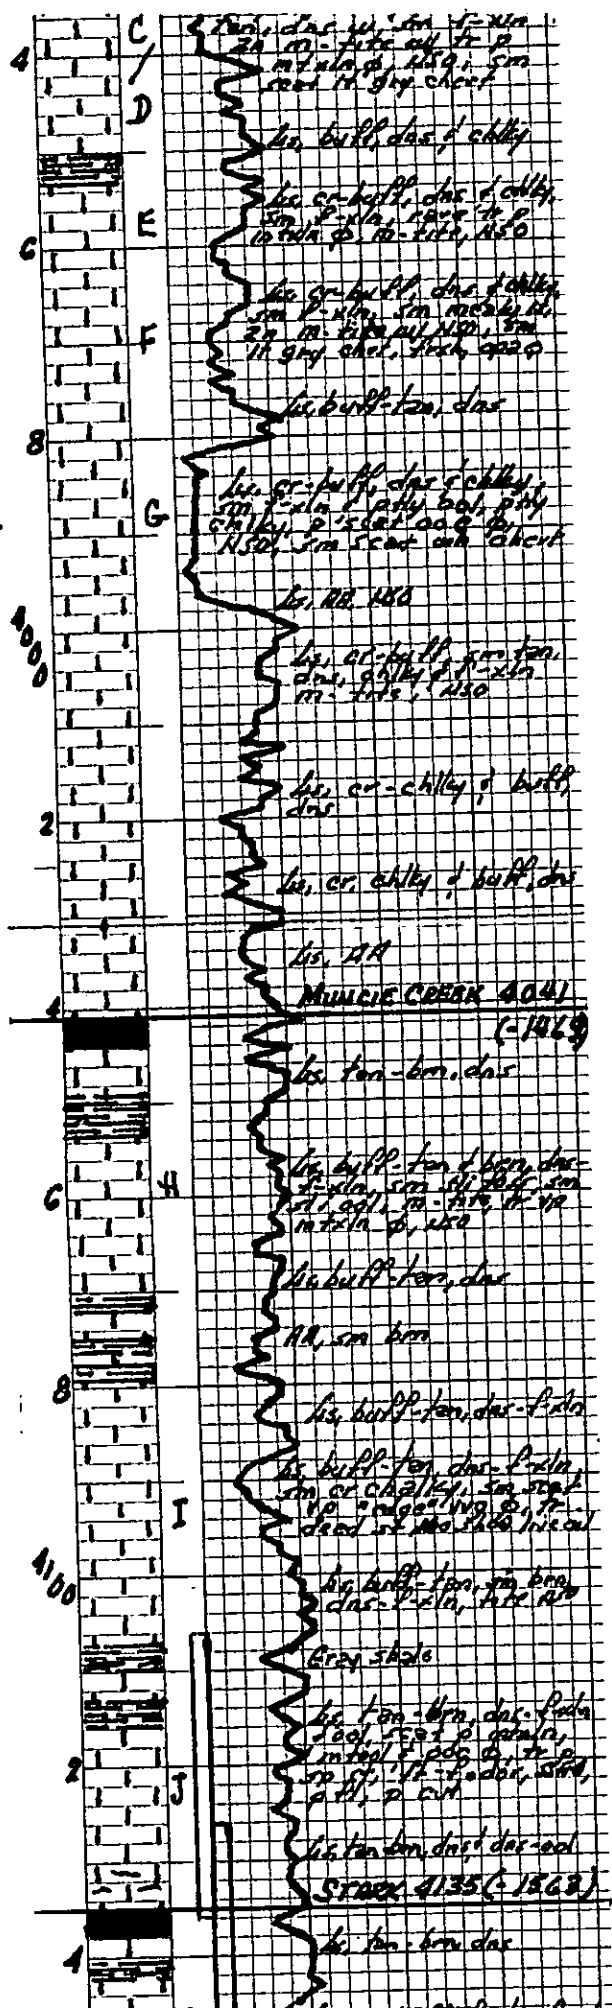 C
tan, dns w/ sm f-xln
/
zn m-tite w/ tr p
4
mtxln φ, NSO, sm
scat lt gry chert
D
Ls, buff, dns & chlky
Ls, cr-buff, dns & chlky,
E
sm f-xln, rare tr p
intxln φ, m-tite, NSO
6
Ls, cr-buff, dns & chlky,
sm f-xln, sm mealy
F
zn m-tite w/ NSO, sm
lt gry chert, fresh, opaq
Ls, buff-tan, dns
8
Ls, cr-buff, dns & chlky,
G
sm f-xln & ptly ool, ptly
chlky, p scat ooc φ,
NSO, sm scat chert
Ls, AA, NSO
4000
Ls, cr-buff, sm tan,
dns, chlky & f-xln
m-tite, NSO
Ls, cr-chlky & buff,
2
dns
Ls, cr, chlky & buff, dns
Ls, AA
MUNCIE CREEK 4041
4
(-1469)
Ls, tan-brn, dns
Ls, buff-tan & brn, dns-
H
f-xln, sm sli foss, sm
6
sli ool, m-tite, tr vp
intxln φ, NSO
Ls, buff-tan, dns
AA, sm brn
8
Ls, buff-tan, dns-f-xln
Ls, buff-tan, dns-f-xln,
sm cr chalky, sm scat
I
vp "edge" vug φ, tr
dead st, no show live oil
4100
Ls, buff-tan, brn,
dns-f-xln, tite, NSO
Gray shale
Ls, tan-brn, dns-f-xln
& ool, scat p
intool & φ, tr p
2
sp st, lt-f odor,
J
p cut
Ls, tan-brn, dns & dns-ool
STARK 4135 (-1563)
Ls, tan-brn, dns
4